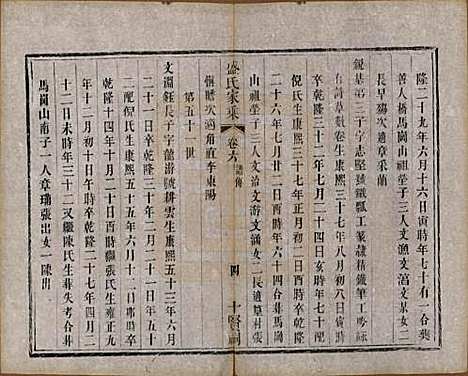 隆二十九年六月十六日寅時年七十有一合葬
善人橋馬崗山祖塋子三人文漁文 女二
長早殤次適章采蘭
鋭基第三子字志堅號鐵瓢工篆隸精鐵筆工吟詠
有詩草數卷生康熙三十七年八月初三日寅時
卒乾隆三十二年六月初二日酉時年七十配
倪氏生康熙三十七年正月初二日酉時卒乾隆
二十六年七月廿二日酉時年六十四合葬馬崗
山祖塋子三人文洽文游文涵女二長適草村張
惟賸次適甪直李東陽
盛氏家乘
卷六
譜傳
四
十賢祠
第五十一世
文淵鈺長子字龍游號耕雲生康熙五十三年六月
二十一日卒乾隆三十二年二月二十一日年五十
二配倪氏生康熙五十五年六月十二日 時卒
乾隆十四年十月二十日酉時繼張氏生雍正九
年十二月初十日午時卒乾隆二十七年四月二
十二日未時年三十二又繼陳氏生葬失考合葬
馬崗山南子一人章瑞張出女一陳出